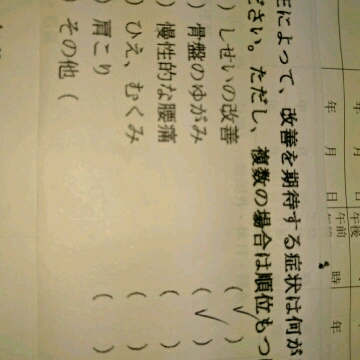 年 月 日 午前 時
年 月 日 午後 年
によって、改善を期待する症状は何が
ださい。ただし、複数の場合は順位もつ
) しせいの改善 ( ✓ )
) 骨盤のゆがみ ( ✓ )
) 慢性的な腰痛 (
) ひえ、むくみ (
) 肩こり (
) その他 (